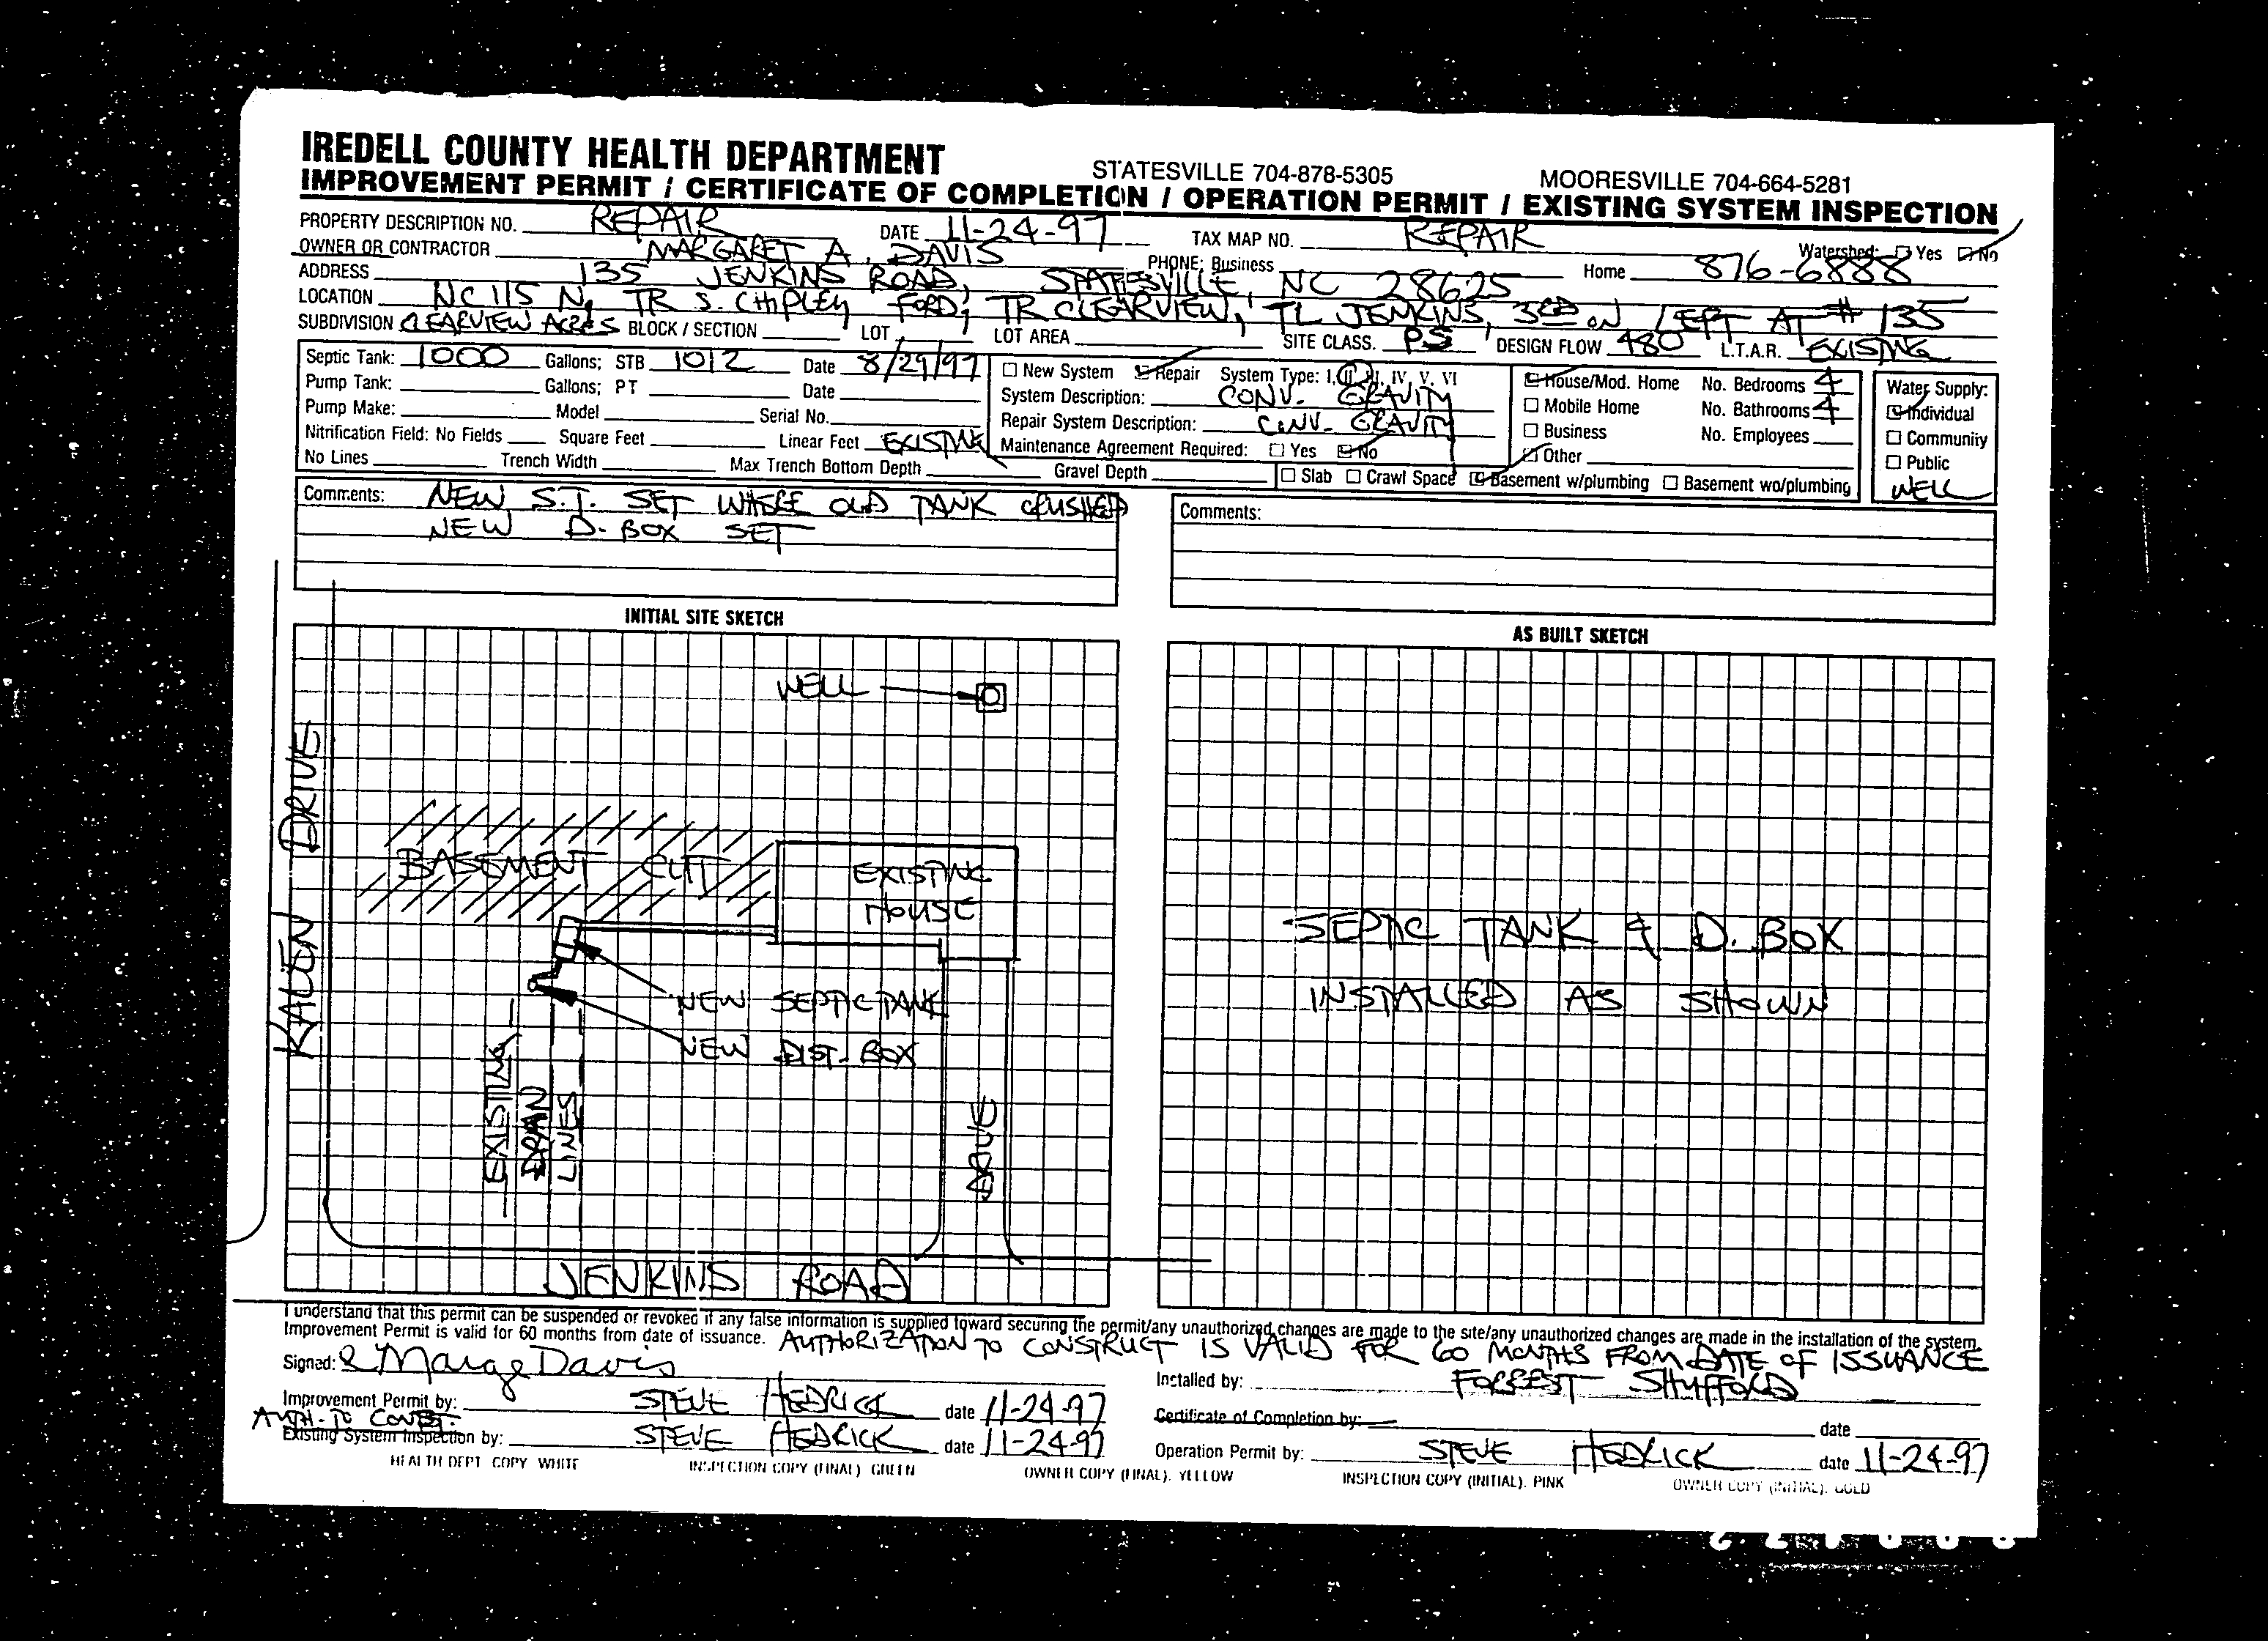 IREDELL COUNTY HEALTH DEPARTMENT STATESVILLE 704-878-5305 MOORESVILLE 704-664-5281
IMPROVEMENT PERMIT / CERTIFICATE OF COMPLETION / OPERATION PERMIT / EXISTING SYSTEM INSPECTION
PROPERTY DESCRIPTION NO. REPAIR DATE 11-24-97 TAX MAP NO. REPAIR Watershed: Yes No
OWNER OR CONTRACTOR MARGARET A. DAVIS PHONE: Business Home 876-6888
ADDRESS 135 JENKINS ROAD, STATESVILLE, NC 28625
LOCATION NC 115 N, TR S. CHIPLEY FORD, TR CLEARVIEW, TL JENKINS, 3RD ON LEFT AT # 135
SUBDIVISION CLEARVIEW ACRES BLOCK / SECTION LOT LOT AREA SITE CLASS. PS DESIGN FLOW 480 L.T.A.R. EXISTING
Septic Tank: 1000 Gallons; STB 1012 Date 8/29/97
Pump Tank: Gallons; PT Date
Pump Make: Model Serial No.
Nitrification Field: No Fields Square Feet Linear Feet EXISTING
No Lines Trench Width Max Trench Bottom Depth Gravel Depth
New System Repair System Type: I, II, III, IV, V, VI
System Description: CONV. GRAVITY
Repair System Description: CONV. GRAVITY
Maintenance Agreement Required: Yes No
Slab Crawl Space Basement w/plumbing Basement wo/plumbing
House/Mod. Home No. Bedrooms 4
Mobile Home No. Bathrooms 4
Business No. Employees
Other
Water Supply:
Individual
Community
Public
WELL
Comments: NEW S.T. SET WHERE OLD TANK CRUSHED
NEW D-BOX SET
Comments:
INITIAL SITE SKETCH
WELL
KALON DRIVE
BASEMENT CUT
EXISTING
HOUSE
NEW SEPTIC TANK
NEW DIST. BOX
EXISTING
DRAIN
LINES
DRIVE
JENKINS ROAD
AS BUILT SKETCH
SEPTIC TANK & D. BOX
INSTALLED AS SHOWN
I understand that this permit can be suspended or revoked if any false information is supplied toward securing the permit/any unauthorized changes are made to the site/any unauthorized changes are made in the installation of the system.
Improvement Permit is valid for 60 months from date of issuance. AUTHORIZATION TO CONSTRUCT IS VALID FOR 60 MONTHS FROM DATE OF ISSUANCE
Signed: Marge Davis
Installed by: FORREST SHUFFORD
Improvement Permit by: STEVE HEDRICK date 11-24-97
Certificate of Completion by: date
AUTH. TO CONST.
Existing System Inspection by: STEVE HEDRICK date 11-24-97
Operation Permit by: STEVE HEDRICK date 11-24-97
HEALTH DEPT COPY WHITE INSPECTION COPY (FINAL) GREEN OWNER COPY (FINAL). YELLOW INSPECTION COPY (INITIAL). PINK OWNER COPY (INITIAL). GOLD